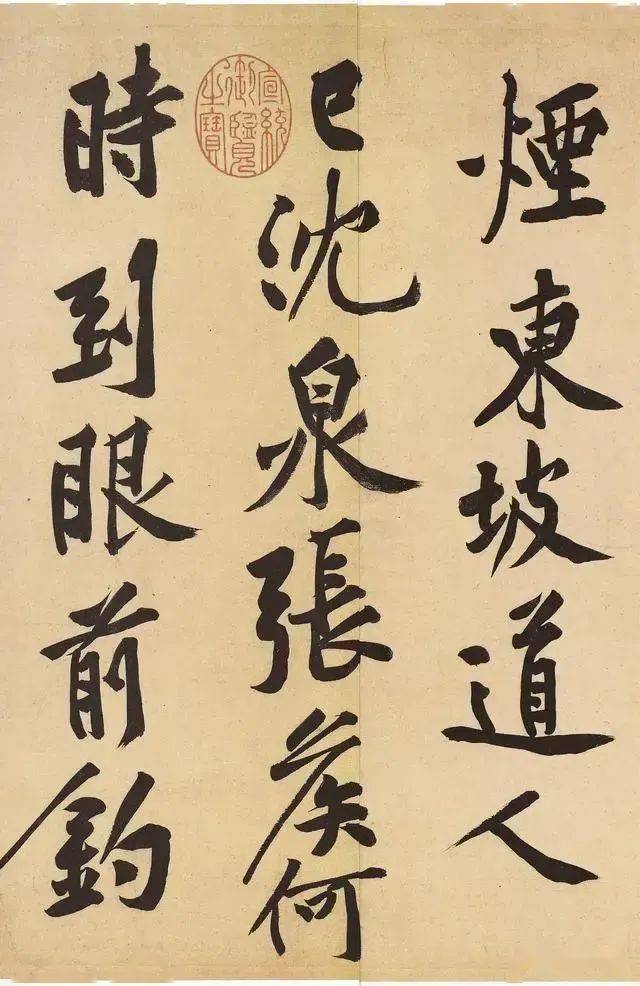 煙東坡道人
已沈泉張侯何
時到眼前釣
宣統御覽之寶